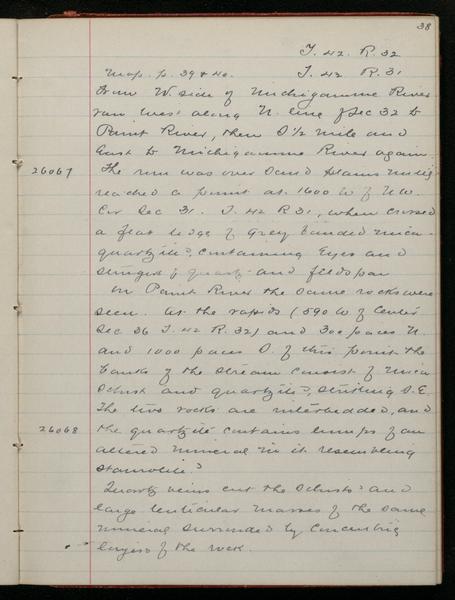 38
T. 42. R. 32
Map. p. 39 & 40. T. 42 R. 31
From W. side of Michigamme River
ran West along N. line of Sec 32 to
Paint River, then S 1/2 mile and
East to Michigamme River again.
26067 The run was over Sand plains until
reached a point at 1600 W of N.W.
Cor Sec 31. T. 42 R 31, when crossed
a flat ledge of Grey banded mica-
quartzite?, containing Eyes and
stringers of quartz and feldspar
On Paint River the same rocks were
seen. At the rapids (590 W of Center
Sec 36 T. 42 R. 32) and 300 paces N.
and 1000 paces S. of this point the
banks of the stream consist of mica
Schist and quartzite?, striking S.E.
The two rocks are interbedded, and
26068 the quartzite contains lumps of an
altered mineral in it resembling
staurolite?
Quartz veins cut the Schists and
large lenticular masses of the same
mineral surrounded by concentric
layers of the rock.